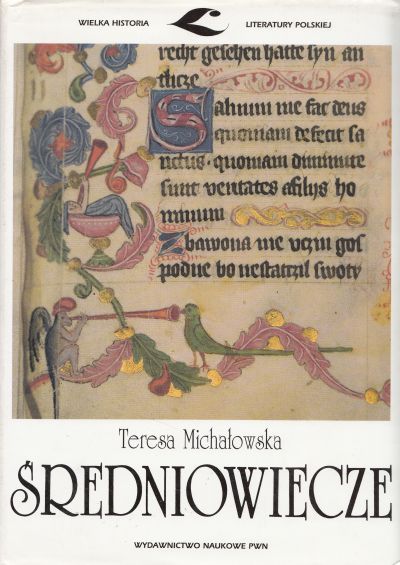 WIELKA HISTORIA LITERATURY POLSKIEJ
recht geschen hatte syn an
tlicze
Saluum me fac deus
quoniam defecit sa
nctus · quoniam diminute
sunt veritates a filijs ho
minum
Zbawona me vczin gos
podne bo nestatczil swoty
Teresa Michałowska
ŚREDNIOWIECZE
WYDAWNICTWO NAUKOWE PWN